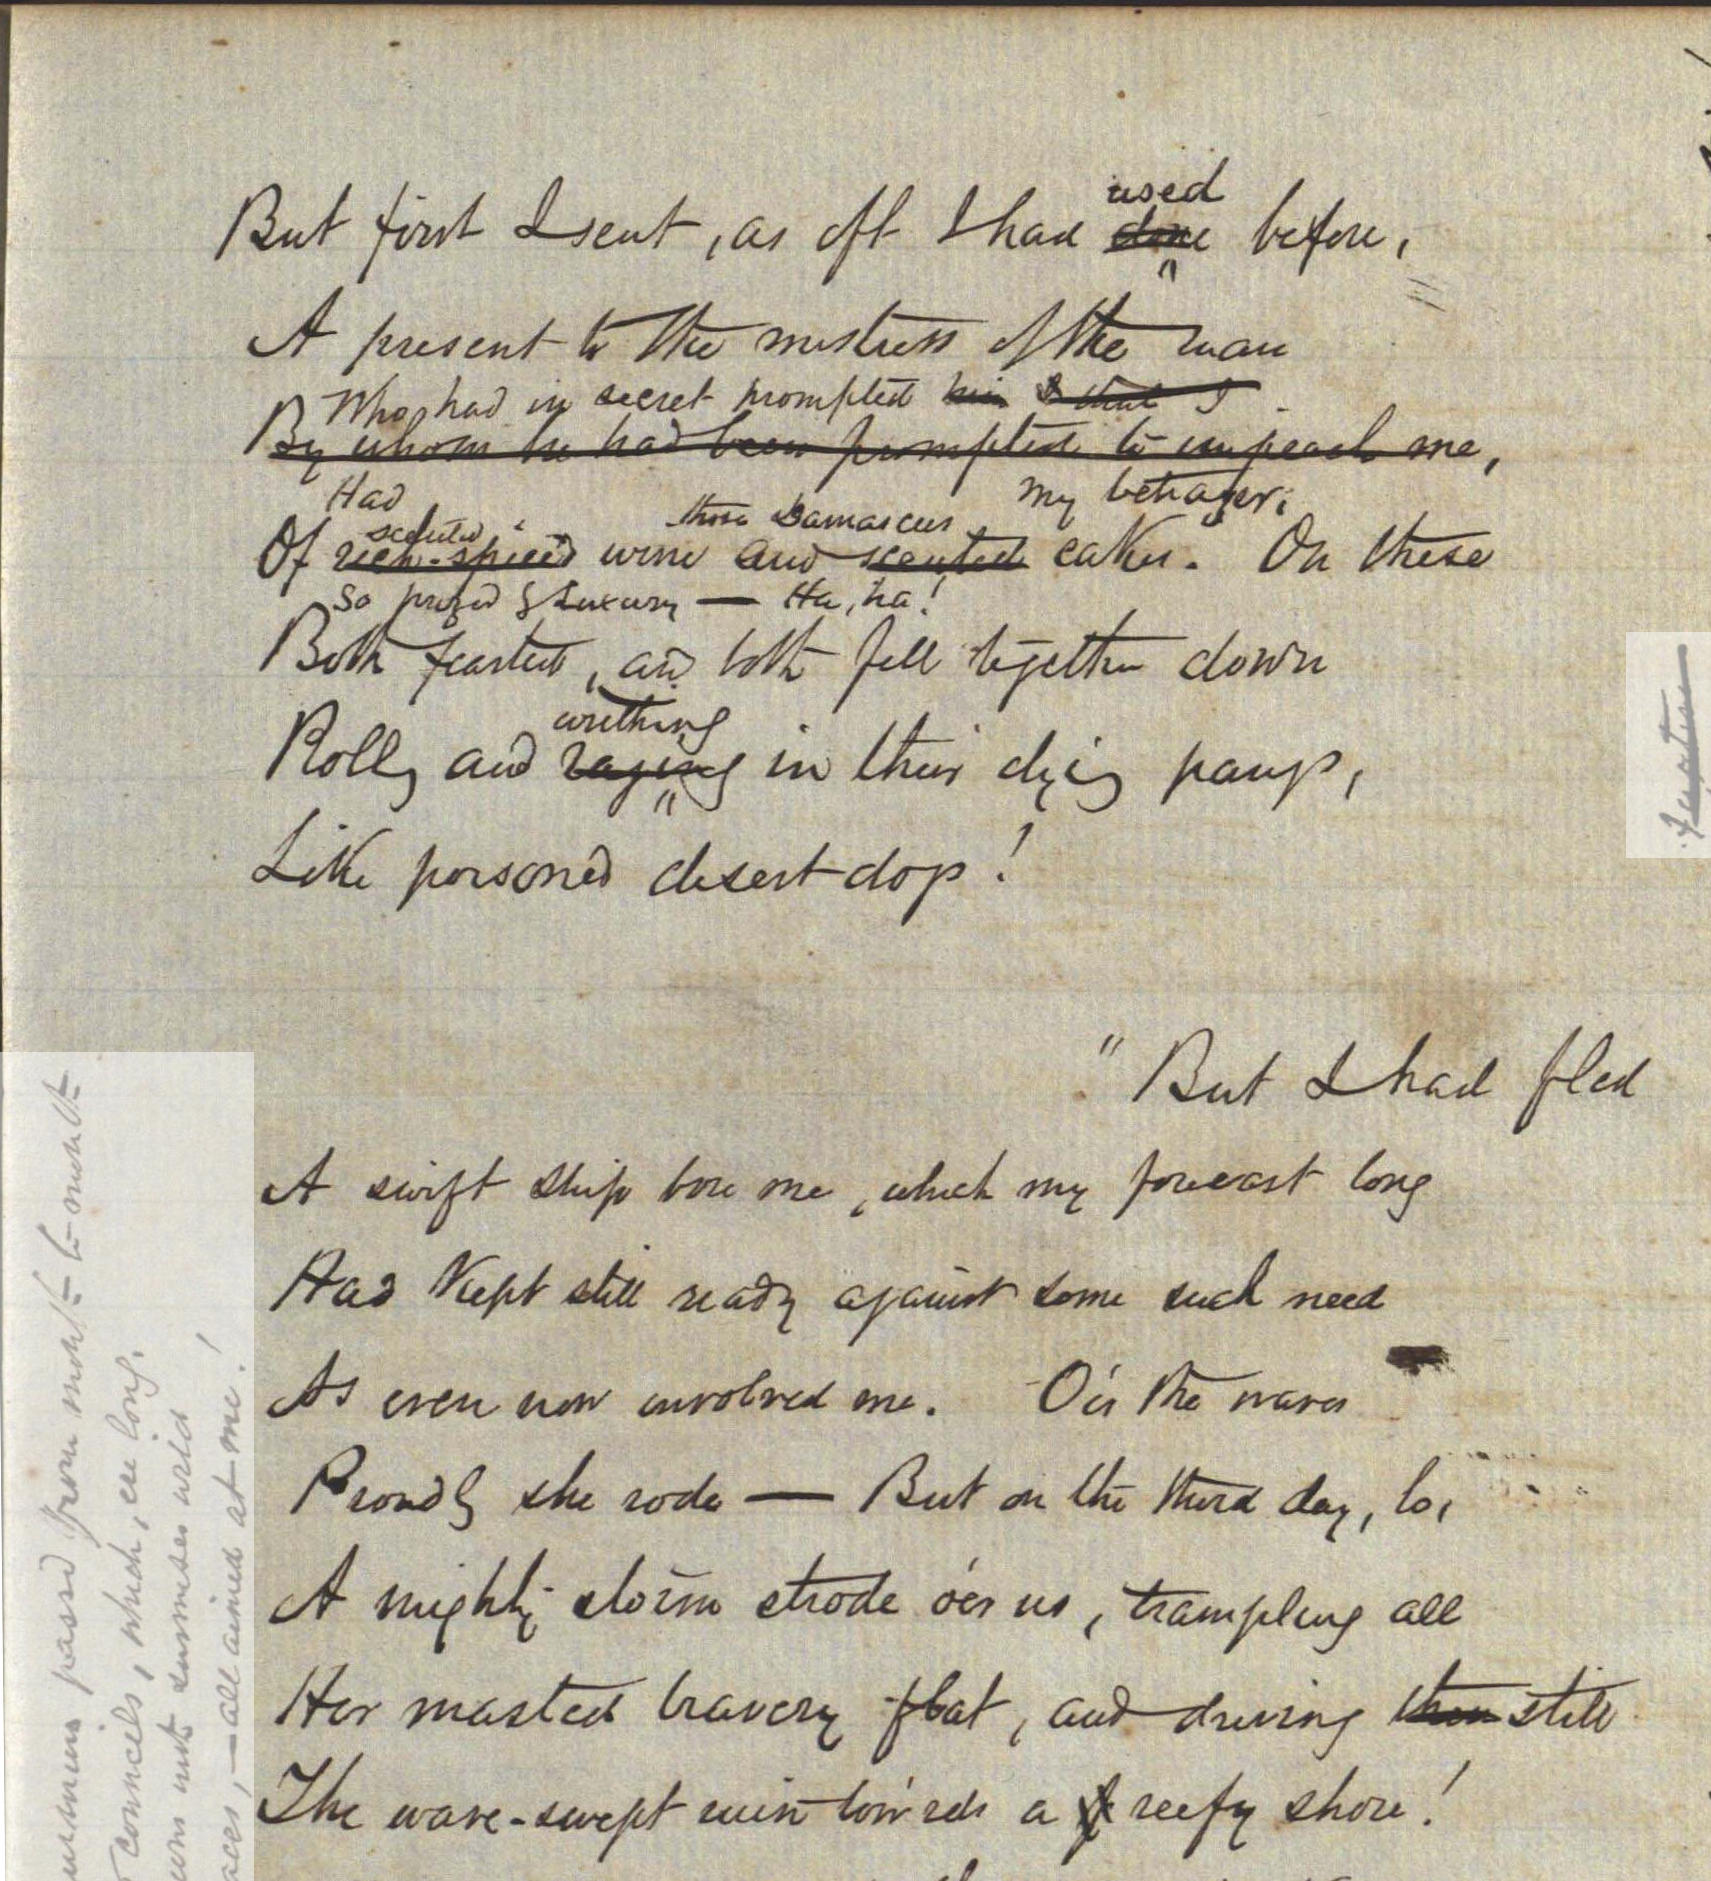 used
But first I sent, as oft I had done before,
A present to the mistress of the man
Who had in secret prompted him & that I
By whom he had been prompted to impeach me,
Had my betrayer,
scented those Damascus
Of rich-spiced wine and scented cakes. On these
So prized & luxury — Ha, ha!
Both feasted, and both fell together down
writhing
Rolly and raging in their dying pangs,
Like poisoned desert-dogs!
"But I had fled
A swift ship bore me, which my forecast long
Had kept still ready against some such need
As even now involved me. O'er the waves
Proudly she rode — But on the third day, lo,
A mighty storm strode o'er us, trampling all
Her masted bravery flat, and driving then still
The wave-swept ruin tow'rds a reefy shore!
pass'd from mouth to mouth
councils, which, ere long,
into surmises wild
— all aimed at me!